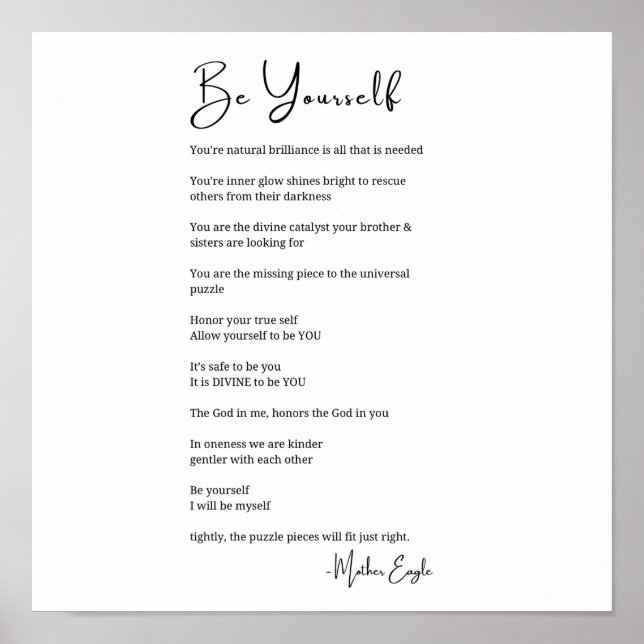 Be Yourself
You're natural brilliance is all that is needed
You're inner glow shines bright to rescue
others from their darkness
You are the divine catalyst your brother &
sisters are looking for
You are the missing piece to the universal
puzzle
Honor your true self
Allow yourself to be YOU
It's safe to be you
It is DIVINE to be YOU
The God in me, honors the God in you
In oneness we are kinder
gentler with each other
Be yourself
I will be myself
tightly, the puzzle pieces will fit just right.
-Mother Eagle